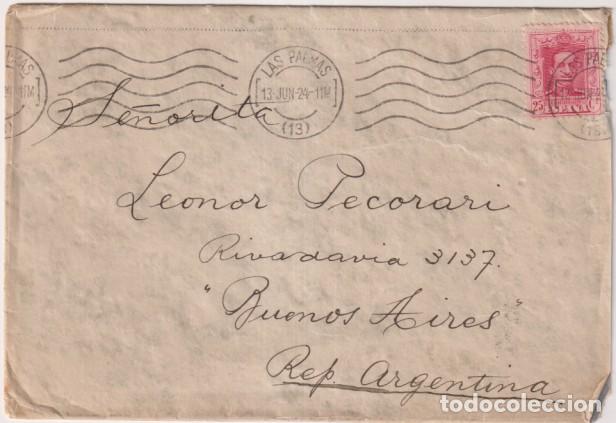 LAS PALMAS
13-JUN-24-11M
(13)
25
Señorita
Leonor Pecorari
Rivadavia 3137.
"Buenos Aires"
Rep. Argentina
todocoleccion.net